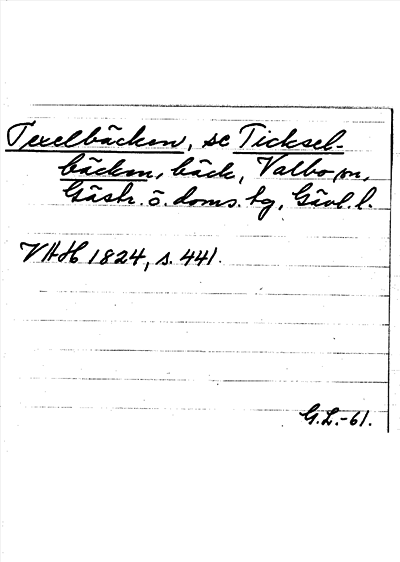 Texelbäcken, se Ticksel-
bäcken, bäck, Valbo sn,
Gästr. ö. doms. tg, Gävl. l.
VAH 1824, s. 441.
G.L.-61.